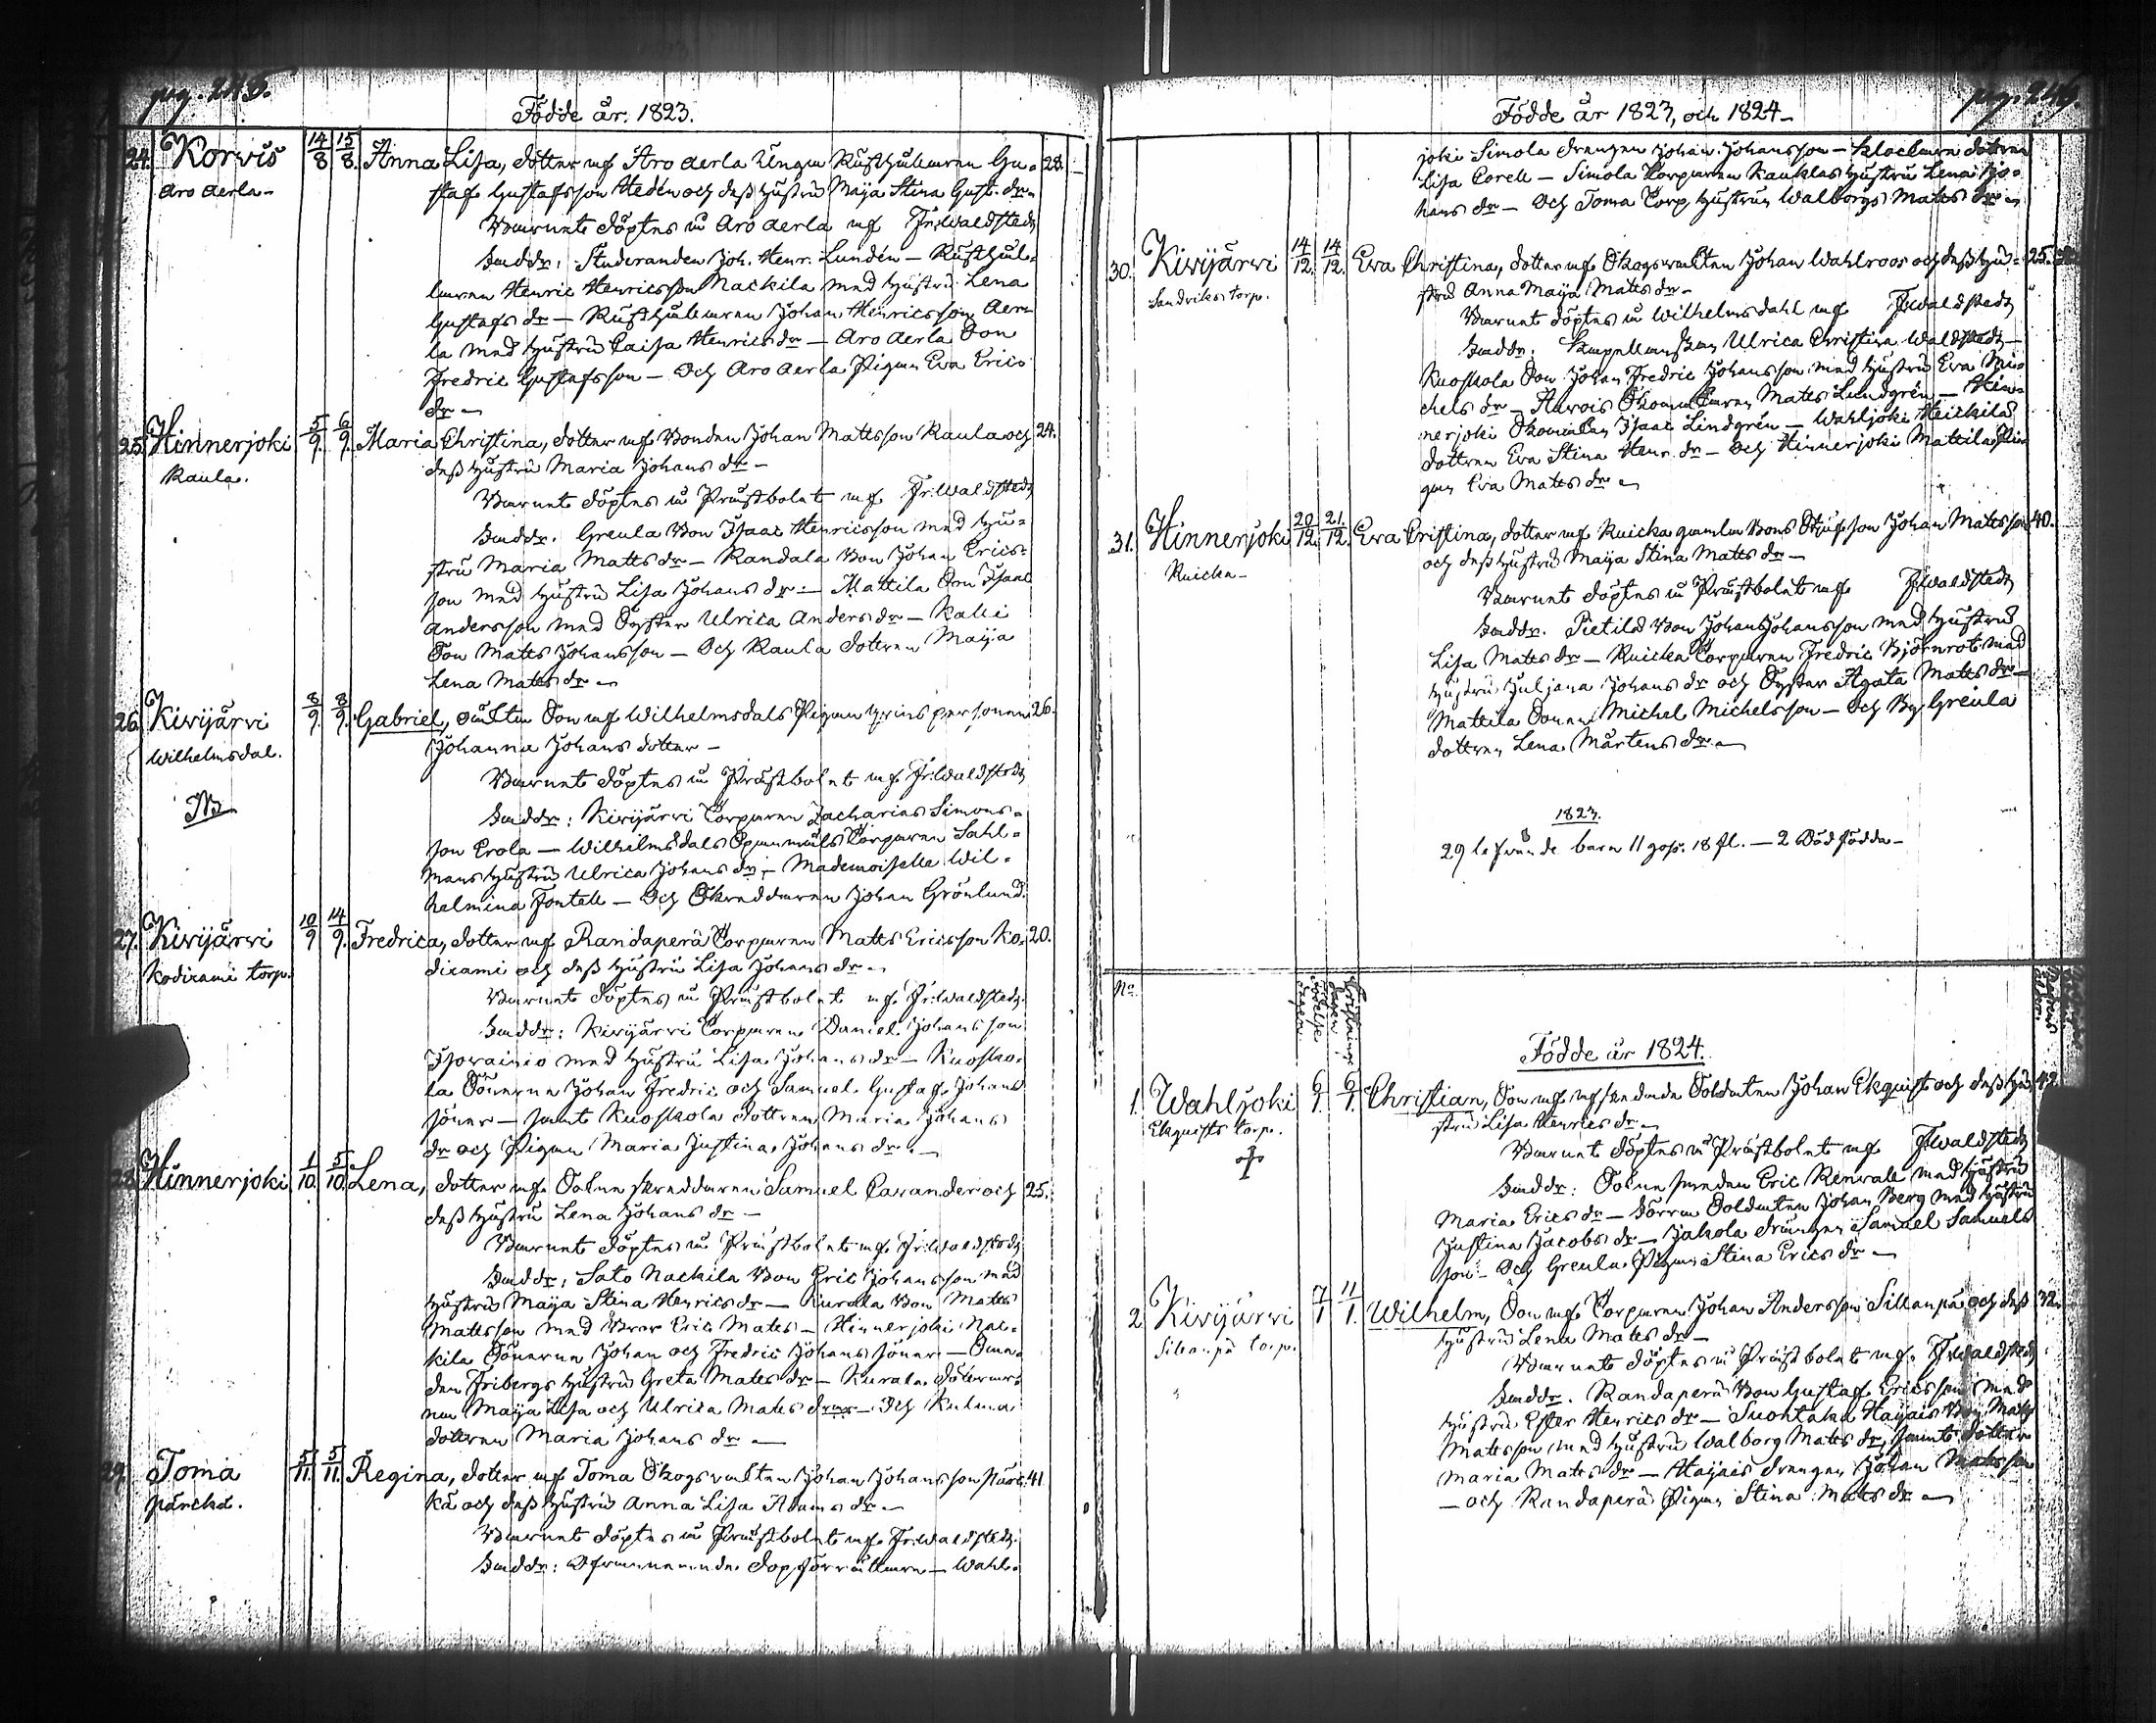 pag. 245.
Födde år. 1823.
24. Korvis 14/8 15/8. Anna Lisa, dotter af Aro Aerla Unga Rusthållaren Gu= 28.
Aro Aerla - staf Gustafsson Hedén och dess hustru Maja Stina Gust. dr
Barnet döptes i Aro Aerla af Fr. Waldstedt
Faddr: Studeranden Joh. Henr. Lundén - Rusthål=
laren Henric Henricsson Nackila med hustru Lena
Gustafs dr - Rusthållaren Johan Henricsson Aer=
la med hustru Caisa Henrics dr - Aro Aerla Son
Fredric Gustafsson - och Aro Aerla Pigan Eva Erics
dr
25. Hinnerjoki 5/9. 6/9. Maria Christina, dotter af Bonden Johan Mattsson Raula och 24.
Raula. dess hustru Maria Johans dr -
Barnet döptes i Prästbolet af Fr. Waldstedt
Faddr. Greula Bon Isaac Henricsson med hu=
stru Maria Matts dr - Randala Bon Johan Erics=
son med hustru Lisa Johans dr - Mattila Son Isaac
Andersson med Syster Ulrica Anders dr - Kalli
Son Matts Johansson - och Raula dottren Maija
Lena Matts dr
26. Kivijärvi 8/9. 8/9. Gabriel, oäkta Son af Wilhelmsdals Pigan 26.
Wilhelmsdal. Johanna Johans dotter -
NB Barnet döptes i Prästbolet af Fr. Waldstedt
Faddr: Kivijärvi Torparen Zacharias Simons=
son Erola - Wilhelmsdals Torparen Sahl=
mans hustru Ulrica Johans dr - Mademoiselle Wil=
helmina Fontell - och Skreddaren Johan Grönlund.
27. Kivijärvi 10/9 14/9. Fredrica, dotter af Randaperä Torparen Matts Ericsson Ko= 20.
Kodixami torp. dixami och dess hustru Lisa Johans dr
Barnet döptes i Prästbolet af Fr. Waldstedt.
Faddr: Kivijärvi Torparen Daniel Johansson
Isovainio med hustru Lisa Johans dr - Kuosko=
la Sönerna Johan Fredric och Samuel Gustaf Johans
söner - samt Kuoskola dottren Maria Johans
dr och Pigan Maria Justina Johans dr
28. Hinnerjoki 1/10. 5/10. Lena, dotter af Sokne skreddaren Samuel Cavander och 25.
dess hustru Lena Johans dr -
Barnet döptes i Prästbolet af Fr. Waldstedt
Faddr: Sato Nackila Bon Eric Johansson med
hustru Maija Stina Henrics dr - Kurala Bon Matts
Mattsson med Bror Eric Matts - Hinnerjoki Nac=
kila Sönerna Johan och Fredric Johans söner - Sme=
den Fribergs hustru Greta Matts dr - Kurala döttrar=
na Maija Lisa och Ulrica Matts drar - och Kulma
dottren Maria Johans dr
29. Toma 5/11. 5/11. Regina, dotter af Toma Skogsvakten Johan Johansson Pärc= 41
Pärckä. kä och dess hustru Anna Lisa Adams dr
Barnet döptes i Prästbolet af Fr. Waldstedt.
Faddr: Ofvannemnde dopförrättare - Wahl=
pag. 246.
Födde år 1823, och 1824 -
joki Simola drengen Johan Johansson - Klockare dottren
Lisa Corell - Simola Torparen Kauklas hustru Lena Jo=
hans dr - och Toma Torp hustrun Walborg Matts dr
30. Kivijärvi 14/12. 14/12. Eva Christina, dotter af Skogsvakten Johan Wahlroos och dess hu= 25.
Sandviks torp. stru Anna Maija Matts dr -
Barnet döptes i Wilhelmsdahl af Fr. Waldstedt
Faddr: Kapellanskan Ulrica Christina Waldstedt -
Kuoskola Son Johan Fredric Johansson med hustru Eva Mi=
chels dr - Korvois Skomakaren Matts Lundgrén - Hin=
nerjoki Skomakaren Isaac Lindgrén - Wahljoki Heickilä
dottren Eva Stina Henr. dr - och Hinnerjoki Mattila Pi=
gan Eva Matts dr
31. Hinnerjoki 20/12. 21/12. Eva Cristina, dotter af Ruicka gamla Bons Styfson Johan Mattsson 40.
Ruicka - och dess hustru Maija Stina Matts dr -
Barnet döptes i Prästbolet af Fr. Waldstedt
Faddr. Pietilä Bon Johan Johansson med hustru
Lisa Matts dr - Ruicka Torparen Fredric Björnrot med
hustru Juliana Johans dr och Syster Agata Matts dr -
Mattila Sonen Michel Michelsson - och By Greula
dottren Lena Mårtens dr
1823.
29 lefvande barn 11 goss. 18 fl. - 2 Död födda -
No. Födelse dagen. Christnings dagen
Födde år 1824.
1. Wahljoki 6/1. 6/1. Christian, Son af afskedade Soldaten Johan Ekquist och dess hu= 42
Ekquists torp. stru Lisa Henrics dr
Barnet döptes i Prästbolet af Fr. Waldstedt
Faddr: Sokne smeden Eric Renvall med hustru
Maria Erics dr - Soldaten Johan Berg med hustru
Justina Jacobs dr - Jakola drängen Samuel Samuels
son - och Greula Pigan Stina Erics dr -
2. Kivijärvi 7/1 11/1. Wilhelm, Son af Torparen Johan Andersson Sillanpä och dess 32.
Sillanpä torp. hustru Lena Matts dr -
Barnet döptes i Prästbolet af Fr. Waldstedt
Faddr. Randaperä Bon Gustaf Ericsson med
hustru Ester Henrics dr - Suontaka Haijais Bon Matts
Mattsson med hustru Walborg Matts dr, samt dotter
Maria Matts dr - Haijais drengen Johan Mattsson
- och Randaperä Pigan Stina Matts dr